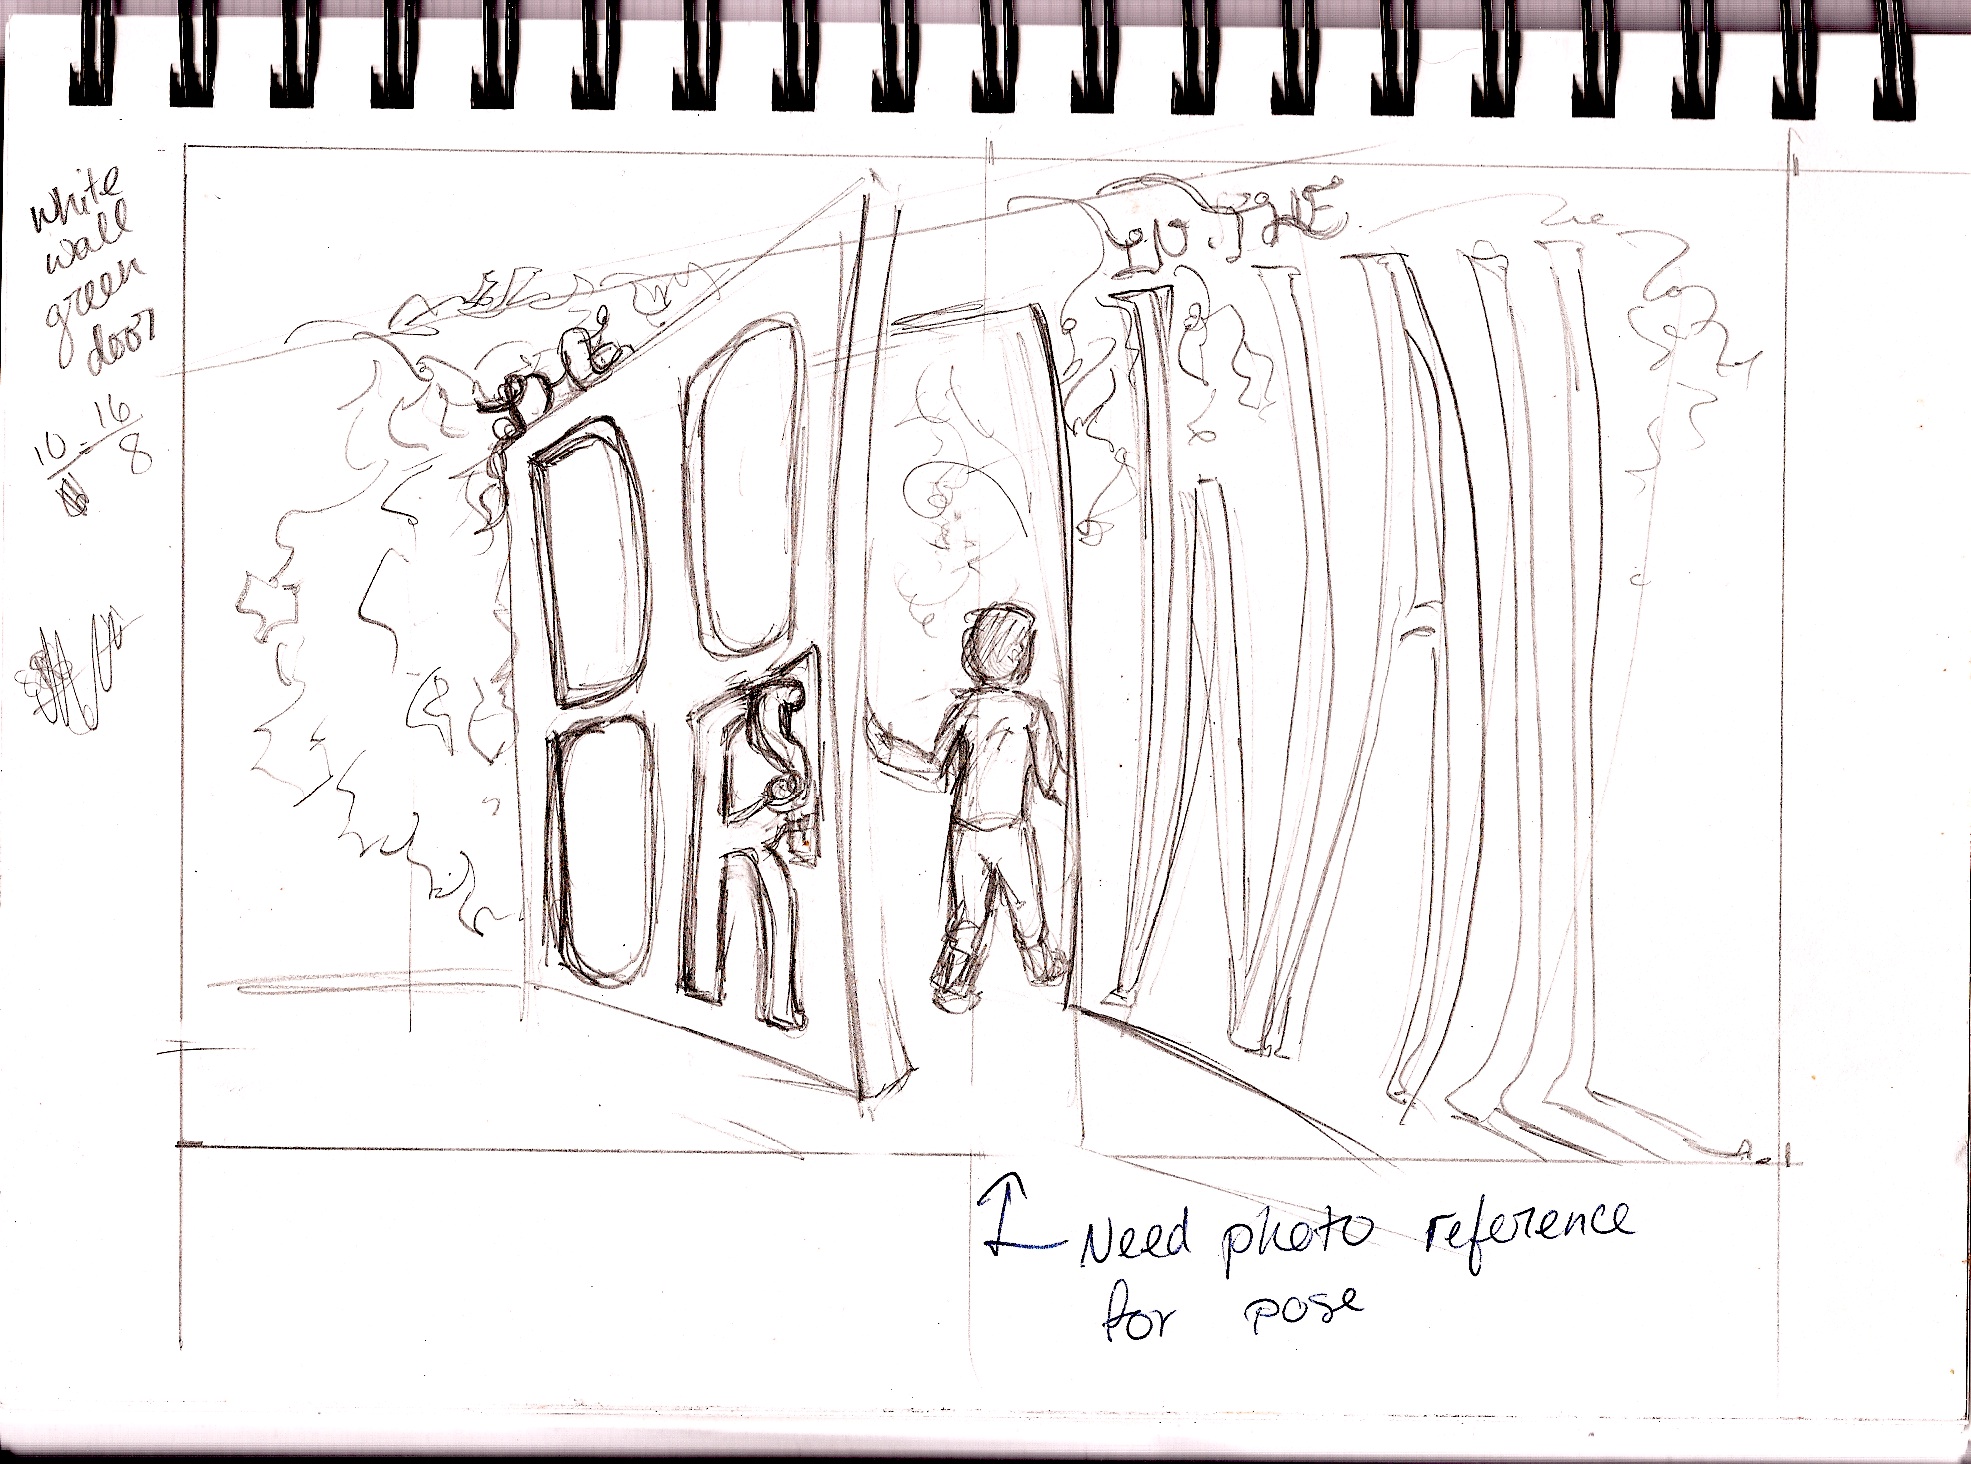 white
wall
green
door
10 16
8
THE
DO
OR
IN THE
WALL
Need photo reference
for pose